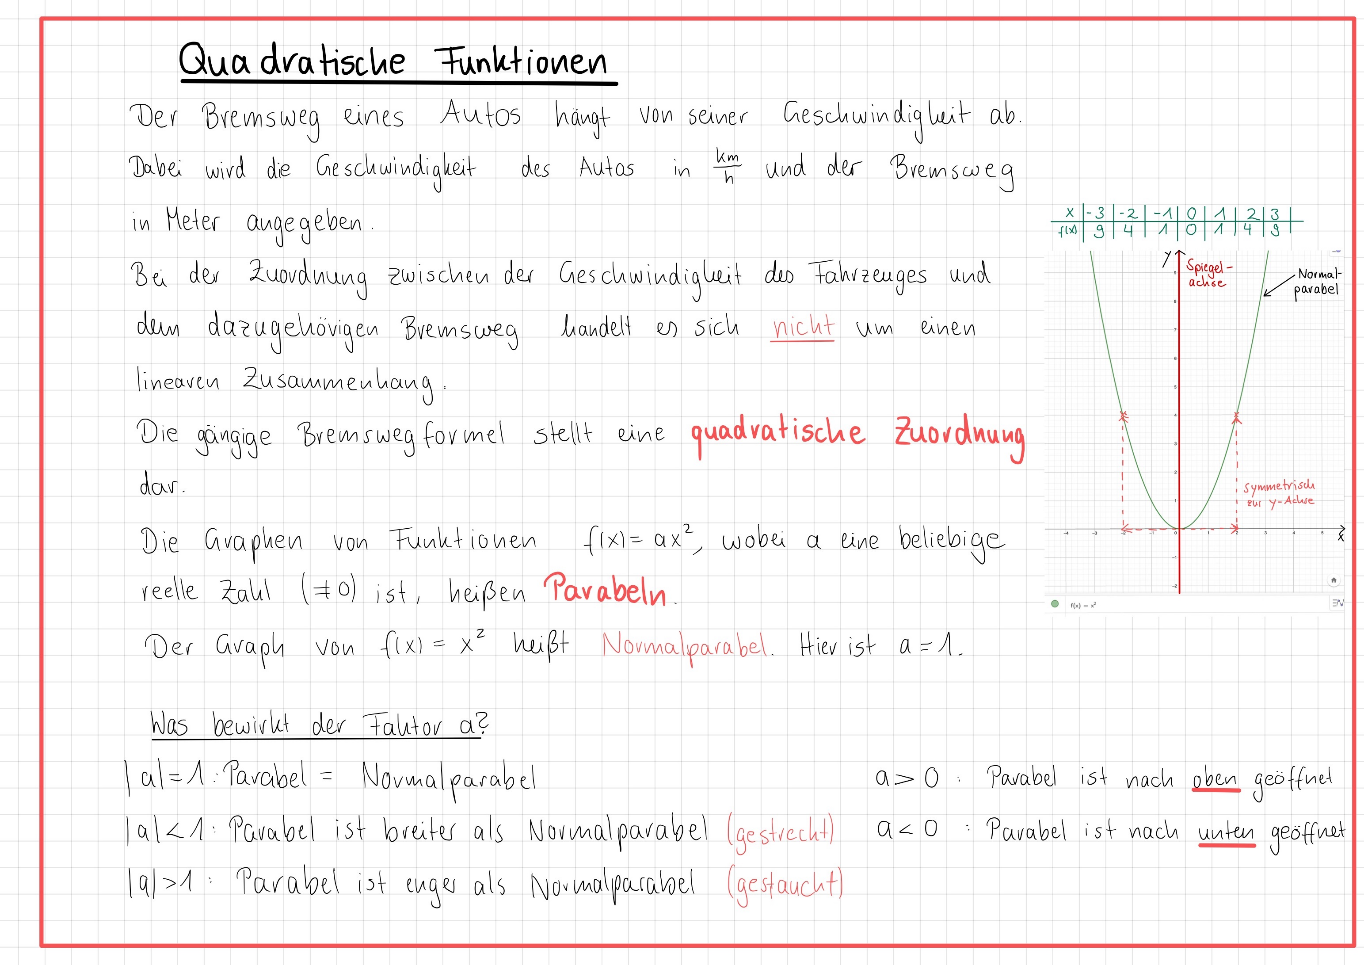 Quadratische Funktionen
Der Bremsweg eines Autos hängt von seiner Geschwindigkeit ab.
Dabei wird die Geschwindigkeit des Autos in km/h und der Bremsweg
in Meter angegeben.
Bei der Zuordnung zwischen der Geschwindigkeit des Fahrzeuges und
dem dazugehörigen Bremsweg handelt es sich nicht um einen
linearen Zusammenhang.
Die gängige Bremswegformel stellt eine quadratische Zuordnung
dar.
Die Graphen von Funktionen f(x) = ax², wobei a eine beliebige
reelle Zahl (≠0) ist, heißen Parabeln.
Der Graph von f(x) = x² heißt Normalparabel. Hier ist a = 1.
x | -3 | -2 | -1 | 0 | 1 | 2 | 3 |
f(x) | 9 | 4 | 1 | 0 | 1 | 4 | 9 |
y
Spiegel-
achse
Normal-
parabel
symmetrisch
zur y-Achse
x
f(x) = x²
Was bewirkt der Faktor a?
|a| = 1 : Parabel = Normalparabel
|a| < 1 : Parabel ist breiter als Normalparabel (gestreckt)
|a| > 1 : Parabel ist enger als Normalparabel (gestaucht)
a > 0 : Parabel ist nach oben geöffnet
a < 0 : Parabel ist nach unten geöffnet